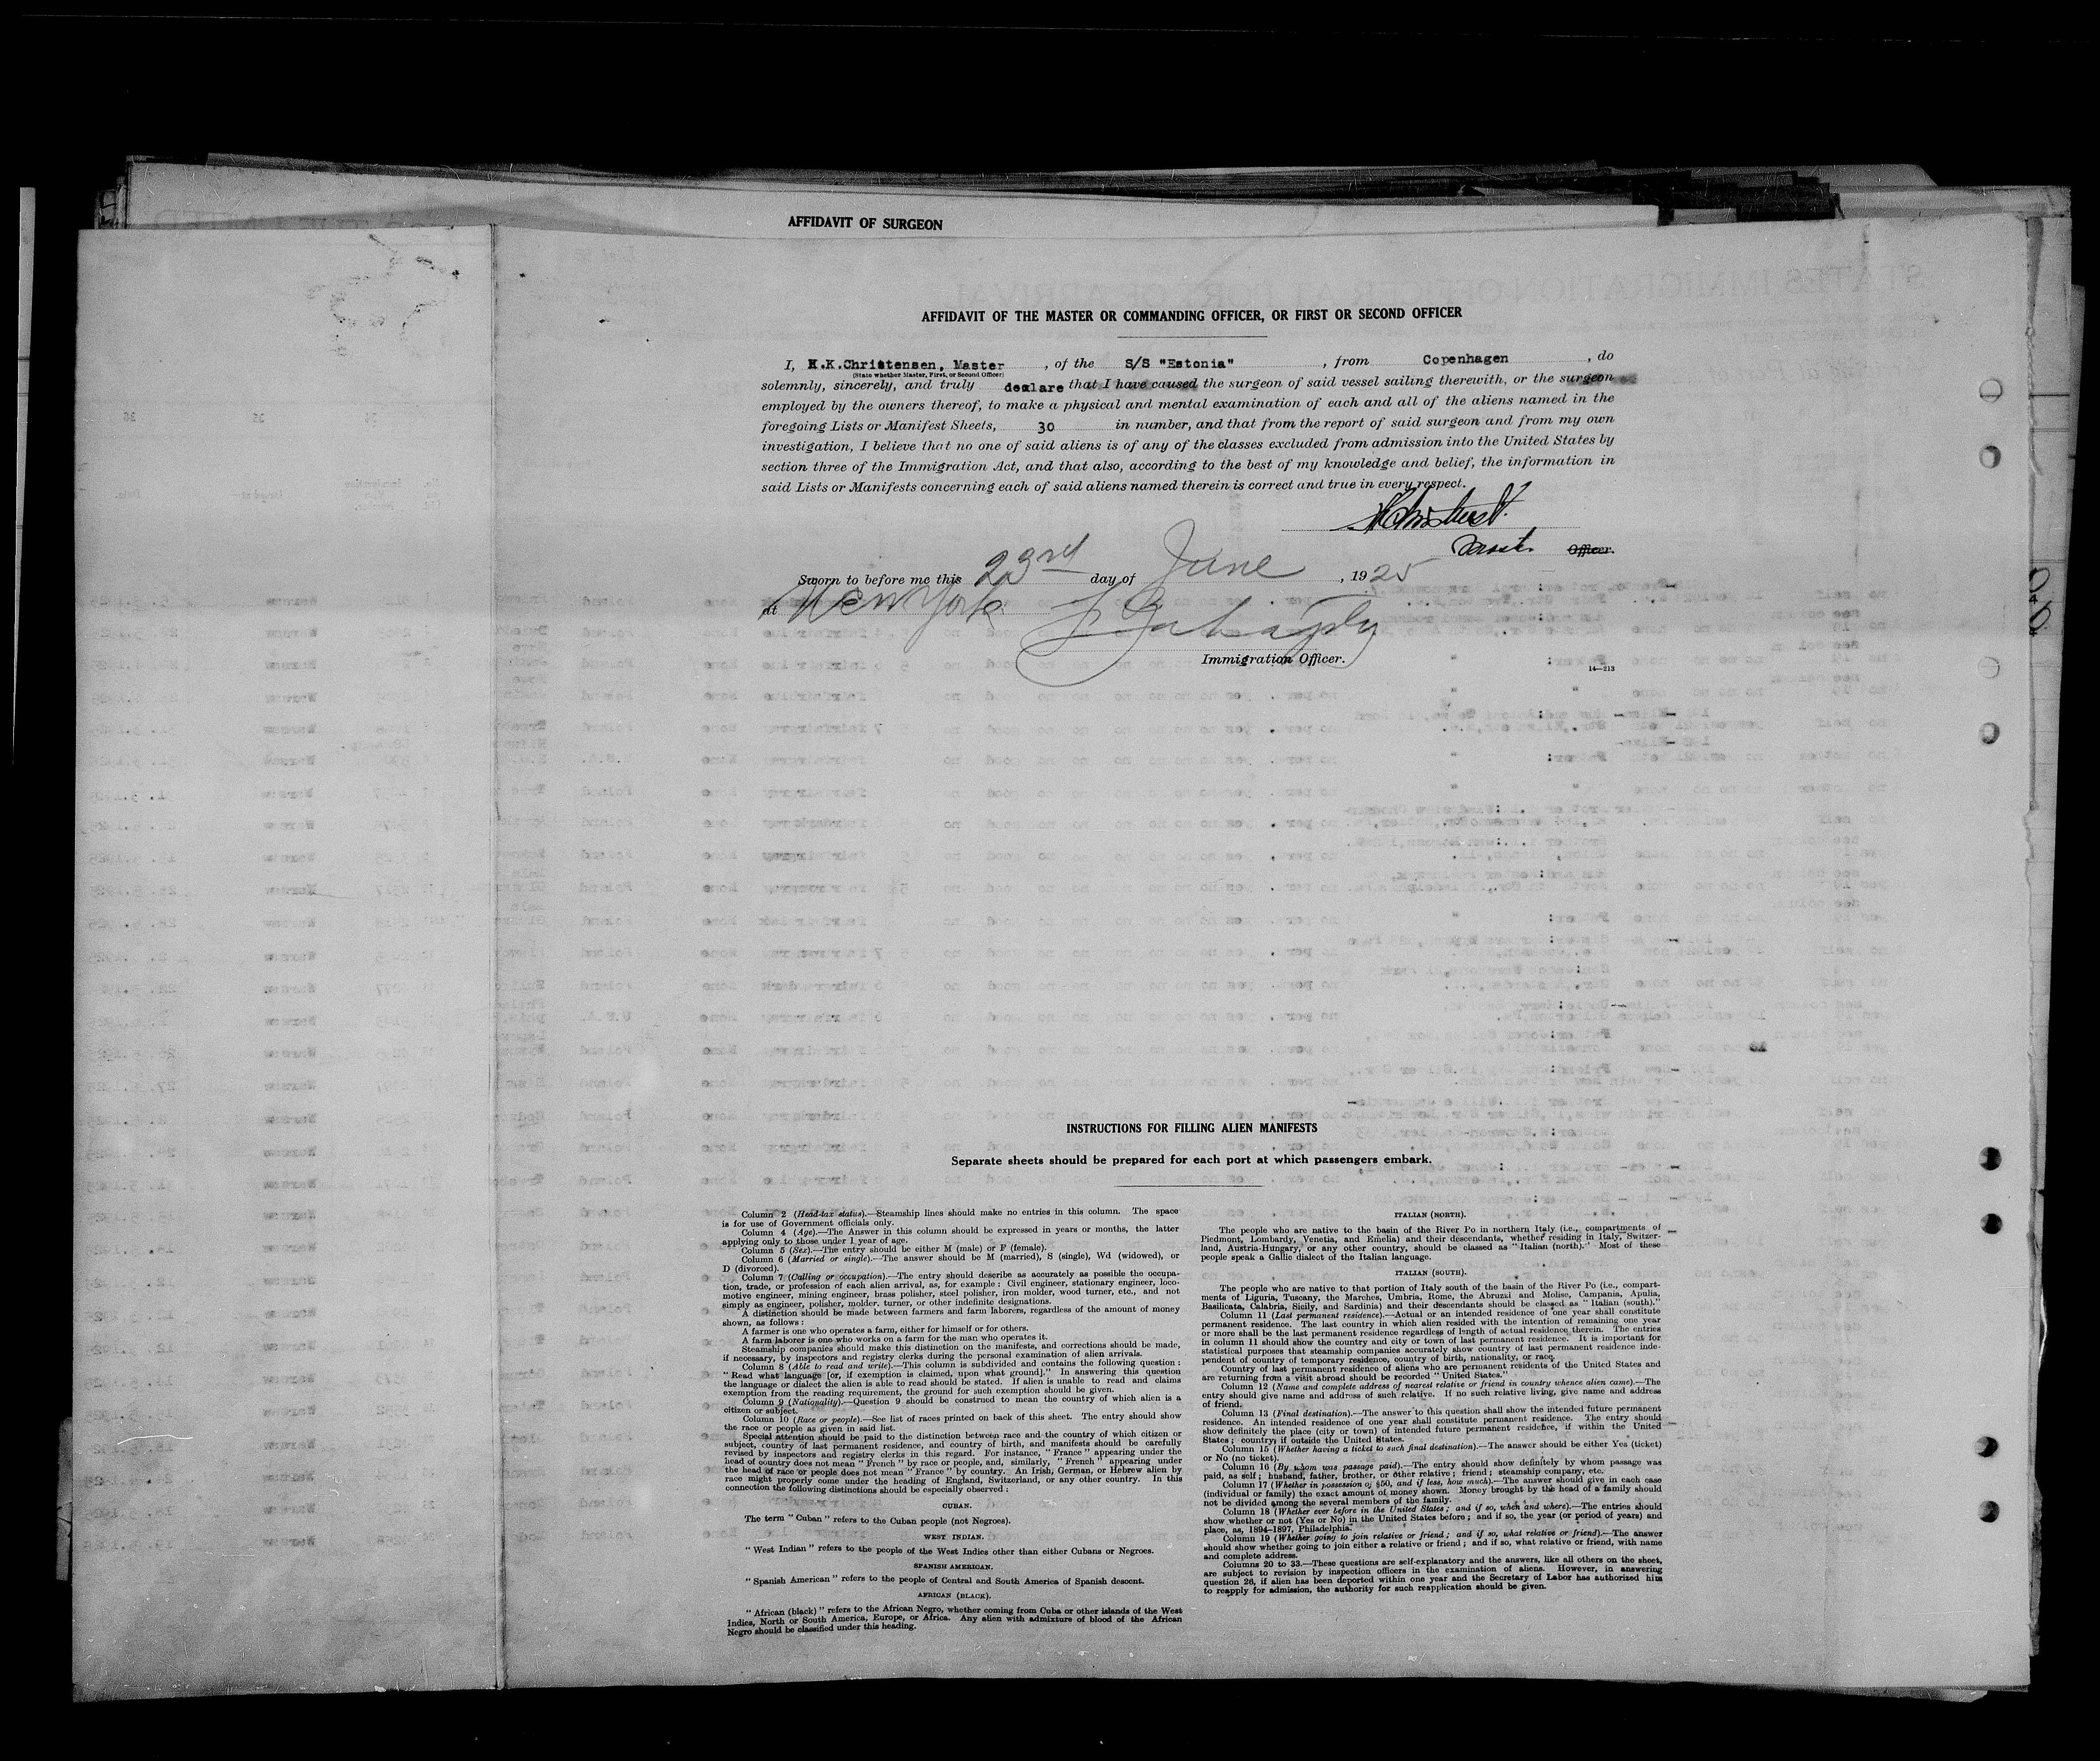 AFFIDAVIT OF SURGEON
AFFIDAVIT OF THE MASTER OR COMMANDING OFFICER, OR FIRST OR SECOND OFFICER
I, H.K.Christensen, Master , of the S/S "Estonia" , from Copenhagen , do
(State whether Master, First, or Second Officer)
solemnly, sincerely, and truly declare that I have caused the surgeon of said vessel sailing therewith, or the surgeon
employed by the owners thereof, to make a physical and mental examination of each and all of the aliens named in the
foregoing Lists or Manifest Sheets, 30 in number, and that from the report of said surgeon and from my own
investigation, I believe that no one of said aliens is of any of the classes excluded from admission into the United States by
section three of the Immigration Act, and that also, according to the best of my knowledge and belief, the information in
said Lists or Manifests concerning each of said aliens named therein is correct and true in every respect.
Officer.
Sworn to before me this 23rd day of June , 1925
at New York
Immigration Officer.
14—213
INSTRUCTIONS FOR FILLING ALIEN MANIFESTS
Separate sheets should be prepared for each port at which passengers embark.
Column 2 (Head-tax status).—Steamship lines should make no entries in this column. The space
is for use of Government officials only.
Column 4 (Age).—The Answer in this column should be expressed in years or months, the latter
applying only to those under 1 year of age.
Column 5 (Sex).—The entry should be either M (male) or F (female).
Column 6 (Married or single).—The answer should be M (married), S (single), Wd (widowed), or
D (divorced).
Column 7 (Calling or occupation).—The entry should describe as accurately as possible the occupa-
tion, trade, or profession of each alien arrival, as, for example: Civil engineer, stationary engineer, loco-
motive engineer, mining engineer, brass polisher, steel polisher, iron molder, wood turner, etc., and not
simply as engineer, polisher, molder, turner, or other indefinite designations.
A distinction should be made between farmers and farm laborers, regardless of the amount of money
shown, as follows:
A farmer is one who operates a farm, either for himself or for others.
A farm laborer is one who works on a farm for the man who operates it.
Steamship companies should make this distinction on the manifests, and corrections should be made,
if necessary, by inspectors and registry clerks during the personal examination of alien arrivals.
Column 8 (Able to read and write).—This column is subdivided and contains the following question:
"Read what language [or, if exemption is claimed, upon what ground]." In answering this question
the language or dialect the alien is able to read should be stated. If alien is unable to read and claims
exemption from the reading requirement, the ground for such exemption should be given.
Column 9 (Nationality).—Question 9 should be construed to mean the country of which alien is a
citizen or subject.
Column 10 (Race or people).—See list of races printed on back of this sheet. The entry should show
the race or people as given in said list.
Special attention should be paid to the distinction between race and the country of which citizen or
subject, country of last permanent residence, and country of birth, and manifests should be carefully
revised by inspectors and registry clerks in this regard. For instance, "France" appearing under the
head of country does not mean "French" by race or people, and, similarly, "French" appearing under
the head of race or people does not mean "France" by country. An Irish, German, or Hebrew alien by
race might properly come under the heading of England, Switzerland, or any other country. In this
connection the following distinctions should be especially observed:
CUBAN.
The term "Cuban" refers to the Cuban people (not Negroes).
WEST INDIAN.
"West Indian" refers to the people of the West Indies other than either Cubans or Negroes.
SPANISH AMERICAN.
"Spanish American" refers to the people of Central and South America of Spanish descent.
AFRICAN (BLACK).
"African (black)" refers to the African Negro, whether coming from Cuba or other islands of the West
Indies, North or South America, Europe, or Africa. Any alien with admixture of blood of the African
Negro should be classified under this heading.
ITALIAN (NORTH).
The people who are native to the basin of the River Po in northern Italy (i.e., compartments of
Piedmont, Lombardy, Venetia, and Emelia) and their descendants, whether residing in Italy, Switzer-
land, Austria-Hungary, or any other country, should be classed as "Italian (north)." Most of these
people speak a Gallic dialect of the Italian language.
ITALIAN (SOUTH).
The people who are native to that portion of Italy south of the basin of the River Po (i.e., compart-
ments of Liguria, Tuscany, the Marches, Umbria, Rome, the Abruzzi and Molise, Campania, Apulia,
Basilicata, Calabria, Sicily, and Sardinia) and their descendants should be classed as "Italian (south)."
Column 11 (Last permanent residence).—Actual or an intended residence of one year shall constitute
permanent residence. The last country in which alien resided with the intention of remaining one year
or more shall be the last permanent residence regardless of length of actual residence therein. The entries
in column 11 should show the country and city or town of last permanent residence. It is important for
statistical purposes that steamship companies accurately show country of last permanent residence inde-
pendent of country of temporary residence, country of birth, nationality, or race.
Country of last permanent residence of aliens who are permanent residents of the United States and
are returning from a visit abroad should be recorded "United States."
Column 12 (Name and complete address of nearest relative or friend in country whence alien came).—The
entry should give name and address of such relative. If no such relative living, give name and address
of friend.
Column 13 (Final destination).—The answer to this question shall show the intended future permanent
residence. An intended residence of one year shall constitute permanent residence. The entry should
show definitely the place (city or town) of intended future permanent residence, if within the United
States; country, if outside the United States.
Column 15 (Whether having a ticket to such final destination).—The answer should be either Yes (ticket)
or No (no ticket).
Column 16 (By whom was passage paid).—The entry should show definitely by whom passage was
paid, as self; husband, father, brother, or other relative; friend; steamship company, etc.
Column 17 (Whether in possession of $50, and if less, how much).—The answer should give in each case
(individual or family) the exact amount of money shown. Money brought by the head of a family should
not be divided among the several members of the family.
Column 18 (Whether ever before in the United States; and if so, when and where).—The entries should
show whether or not (Yes or No) in the United States before; and if so, the year (or period of years) and
place, as, 1894–1897, Philadelphia.
Column 19 (Whether going to join relative or friend; and if so, what relative or friend).—The answer
should show whether going to join either a relative or friend; and if so, what relative or friend, with name
and complete address.
Columns 20 to 33.—These questions are self-explanatory and the answers, like all others on the sheet,
are subject to revision by inspection officers in the examination of aliens. However, in answering
question 26, if alien has been deported within one year and the Secretary of Labor has authorized him
to reapply for admission, the authority for such reapplication should be given.